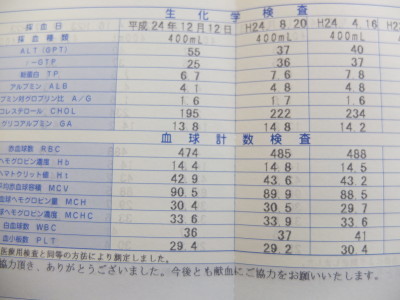 生化学検査
採血日 平成24年12月12日 H24 8.20 H24 4.16 H2
採血種類 400mL 400mL 400mL
ALT (GPT) 55 37 40
-GTP 25 36 37
総蛋白 TP 6.7 7.6 7.8
アルブミン ALB 4.1 4.8 4.8
ブミン対グロブリン比 A/G 1.6 1.7 1.6
コレステロール CHOL 195 222 234
グリコアルブミン GA 13.8 14.8 14.2
血球計数検査
赤血球数 RBC 474 485 488
ヘモグロビン濃度 Hb 14.4 14.8 14.5
ヘマトクリット値 Ht 42.9 43.6 43.2
平均赤血球容積 MCV 90.5 89.9 88.5
球ヘモグロビン量 MCH 30.4 30.5 29.7
球ヘモグロビン濃度 MCHC 33.6 33.9 33.6
白血球数 WBC 36 37 41
血小板数 PLT 29.4 29.2 30.4
医療用検査と同等の方法により測定しました。
協力頂き、ありがとうございました。今後とも献血にご協力をお願いいたします。